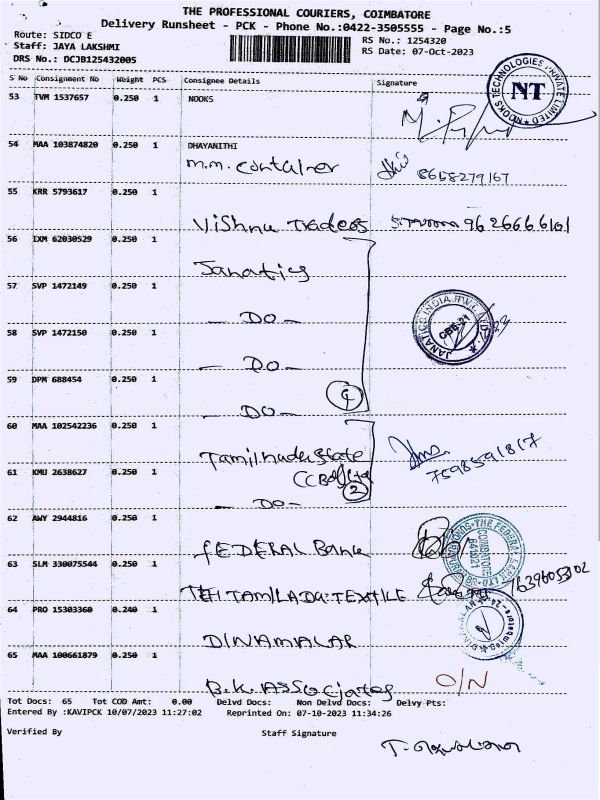 THE PROFESSIONAL COURIERS, COIMBATORE
Delivery Runsheet - PCK - Phone No.:0422-3505555 - Page No.:5
Route: SIDCO E
Staff: JAYA LAKSHMI
DRS No.: DCJB125432005
RS No.: 1254320
RS Date: 07-Oct-2023
S No Consignment No Weight PCS Consignee Details Signature
53 TVM 1537657 0.250 1 NOOKS
NOOKS TECHNOLOGIES PRIVATE LIMITED
NT
54 MAA 103874820 0.250 1 DHAYANITHI
m.m. container 8658279167
55 KRR 5793617 0.250 1
Vishnu Traders 9626666101
56 IXM 62030529 0.250 1
Janatics
57 SVP 1472149 0.250 1
- DO -
JANATICS INDIA PVT LTD
58 SVP 1472150 0.250 1
- DO -
59 DPM 688454 0.250 1
- DO -
4
60 MAA 102542236 0.250 1
Tamilnadu State 7598591817
61 KMU 2638627 0.250 1
- DO -
2
62 AWY 2944816 0.250 1
FEDERAL Bank
THE FEDERAL
COIMBATORE
641021
63 SLM 330075544 0.250 1
TAMILADA TEXTILE
64 PRO 15303360 0.240 1
DINAMALAR
Coimbatore-24
65 MAA 100661879 0.250 1
B.K. ASSociates O/N
Tot Docs: 65 Tot COD Amt: 0.00 Delvd Docs: Non Delvd Docs: Delvy Pts:
Entered By :KAVIPCK 10/07/2023 11:27:02 Reprinted On: 07-10-2023 11:34:26
Verified By Staff Signature